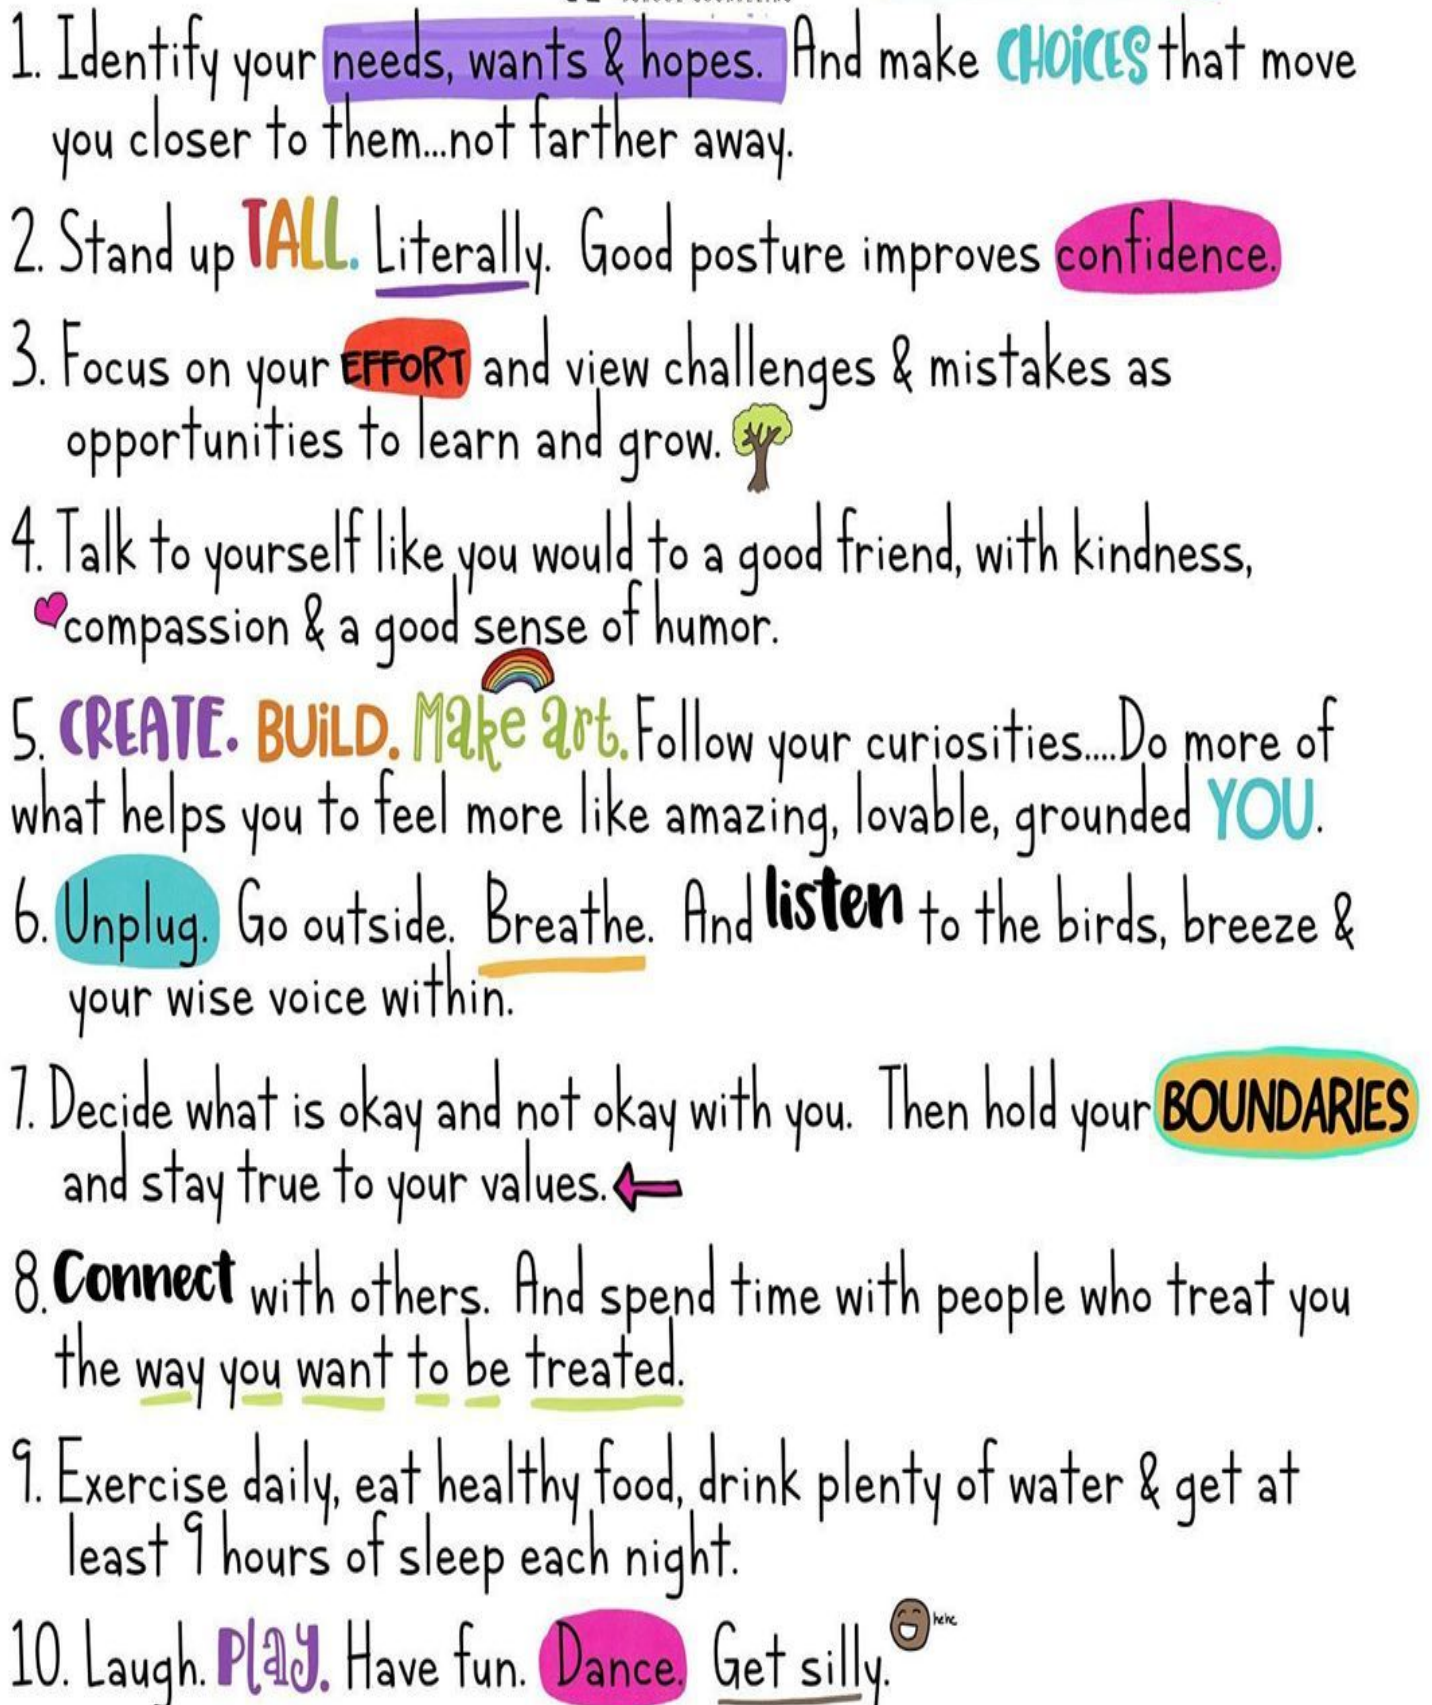 1. Identify your needs, wants & hopes. And make CHOiCES that move
you closer to them...not farther away.
2. Stand up TALL. Literally. Good posture improves confidence.
3. Focus on your EFFORT and view challenges & mistakes as
opportunities to learn and grow.
4. Talk to yourself like you would to a good friend, with kindness,
compassion & a good sense of humor.
5. CREATE. BUiLD. Make art. Follow your curiosities....Do more of
what helps you to feel more like amazing, lovable, grounded YOU.
6. Unplug. Go outside. Breathe. And listen to the birds, breeze &
your wise voice within.
7. Decide what is okay and not okay with you. Then hold your BOUNDARIES
and stay true to your values.
8. Connect with others. And spend time with people who treat you
the way you want to be treated.
9. Exercise daily, eat healthy food, drink plenty of water & get at
least 9 hours of sleep each night.
10. Laugh. Play. Have fun. Dance. Get silly.
hehe